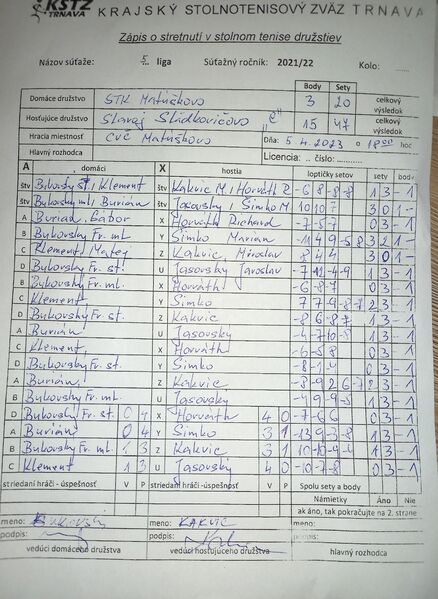 KSTZ TRNAVA KRAJSKÝ STOLNOTENISOVÝ ZVÄZ TRNAVA
Zápis o stretnutí v stolnom tenise družstiev
Názov súťaže: 5 liga Súťažný ročník: 2021/22 Kolo:
Body Sety
Domáce družstvo STK Matúškovo 3 20 celkový výsledok
Hosťujúce družstvo Slavoj Sládkovičovo "C" 15 47 celkový výsledok
Hracia miestnosť CVČ Matúškovo Dňa: 5.4.2023 o 18 00 hod
Hlavný rozhodca Licencia .. číslo:
A domáci X hostia loptičky setov sety body
štv Bukovský st, Klement štv Kakvic M, Horváth R -6 8 -8 -8 1 3 - 1
štv Bukovský ml, Burián štv Jasovský, Šimko M 10 10 7 3 0 1 -
A Burian Gabor X Horváth Richard -7 -5 -7 0 3 - 1
B Bukovský Fr. ml. Y Šimko Marian -11 4 9 -5 8 3 2 1 -
C Klement Matej Z Kakvic Miroslav 8 4 4 3 0 1 -
D Bukovský Fr. st. U Jasovský Jaroslav 1 3 - 1
B Bukovský Fr. ml. X Horváth -6 -8 -7 0 3 - 1
C Klement Y Šimko 7 7 -9 -8 -7 2 3 - 1
D Bukovský Fr. st. Z Kakvic 1 3 - 1
A Burián U Jasovský 1 3 - 1
C Klement X Horváth -6 -5 -8 0 3 - 1
D Bukovský Fr. st. Y Šimko 0 3 - 1
A Burián Z Kakvic -8 -9 2 6 -7 2 3 - 1
B Bukovský Fr. ml. U Jasovský 1 3 - 1
D Bukovský Fr. st. 0 4 X Horváth 4 0 -7 -6 -6 0 3 - 1
A Burián 0 4 Y Šimko 3 1 1 3 - 1
B Bukovský Fr. ml. 1 3 Z Kakvic 3 1 1 3 - 1
C Klement 1 3 U Jasovský 4 0 -10 -7 -8 0 3 - 1
striedaní hráči -úspešnosť V P striedaní hráči -úspešnosť V P Spolu sety a body
Námietky Áno Nie
ak áno, tak pokračujte na 2. strane
meno: Bukovský meno: KAKVIC
podpis: podpis:
vedúci domáceho družstva vedúci hosťujúceho družstva hlavný rozhodca